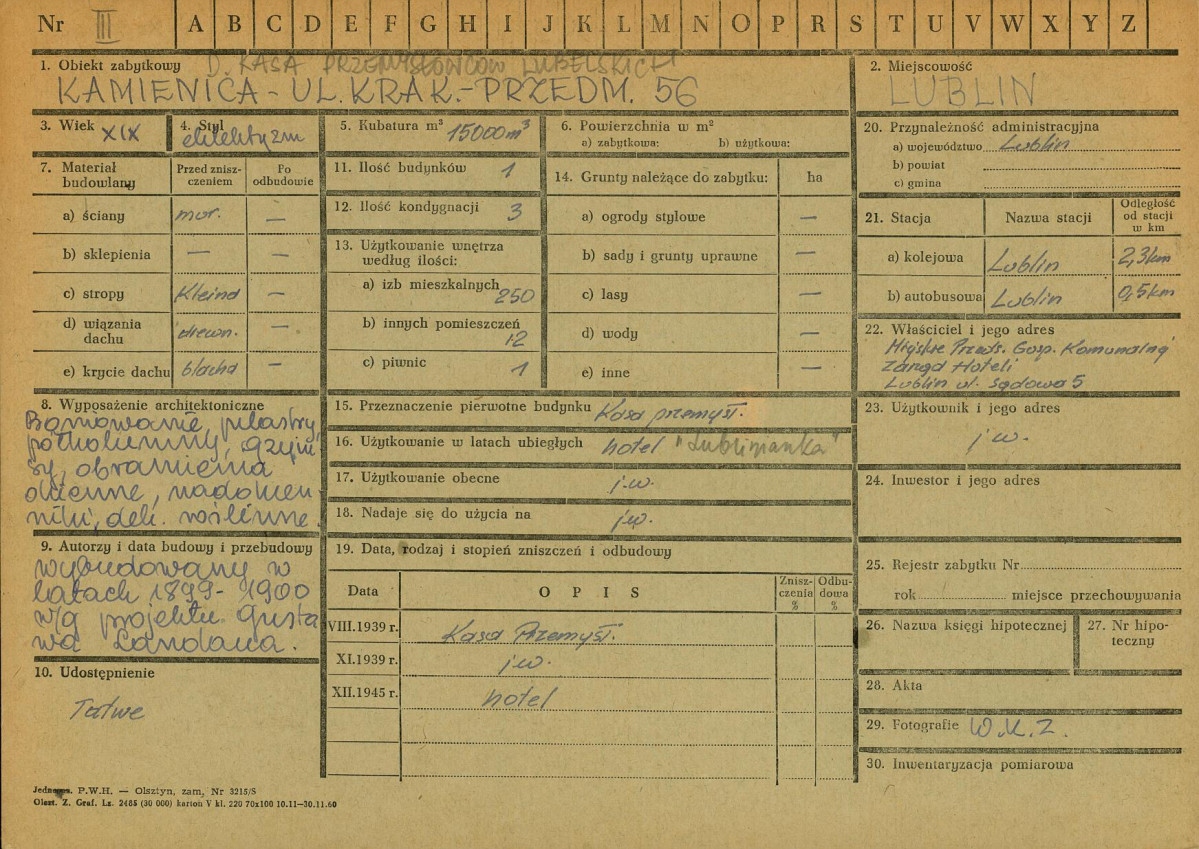 Nr III A B C D E F G H I J K L M N O P R S T U V W X Y Z
1. Obiekt zabytkowy D. KASA PRZEMYSŁOWCÓW LUBELSKICH
KAMIENICA - UL. KRAK.-PRZEDM. 56
2. Miejscowość
LUBLIN
3. Wiek XIX
4. Styl
eklektyzm
5. Kubatura m³ 15000m³
6. Powierzchnia w m²
a) zabytkowa: b) użytkowa:
20. Przynależność administracyjna
a) województwo Lublin
b) powiat
c) gmina
7. Materiał
budowlany
Przed znisz-
czeniem
Po
odbudowie
a) ściany mur. —
b) sklepienia — —
c) stropy Kleina —
d) wiązania
dachu drewn. —
e) krycie dachu blacha —
11. Ilość budynków 1
12. Ilość kondygnacji 3
13. Użytkowanie wnętrza
według ilości:
a) izb mieszkalnych
250
b) innych pomieszczeń
12
c) piwnic 1
14. Grunty należące do zabytku: ha
a) ogrody stylowe —
b) sady i grunty uprawne —
c) lasy —
d) wody —
e) inne —
21. Stacja Nazwa stacji
Odległość
od stacji
w km
a) kolejowa Lublin 2,3km
b) autobusowa Lublin 0,5km
22. Właściciel i jego adres
Miejskie Przeds. Gosp. Komunalnej
Zarząd Hoteli
Lublin ul. Sądowa 5
8. Wyposażenie architektoniczne
Boniowanie, pilastry,
półkolumny, gzym-
sy, obramienia
okienne, nadokien-
niki, dek. roślinne.
15. Przeznaczenie pierwotne budynku Kasa przemysł.
16. Użytkowanie w latach ubiegłych hotel "Lublinianka"
17. Użytkowanie obecne j.w.
18. Nadaje się do użycia na j.w.
23. Użytkownik i jego adres
j.w.
24. Inwestor i jego adres
9. Autorzy i data budowy i przebudowy
wybudowany w
latach 1899-1900
w/g projektu Gusta
wa Landaua.
10. Udostępnienie
Łatwe
19. Data, rodzaj i stopień zniszczeń i odbudowy
Data OPIS
Znisz-
czenia
%
Odbu-
dowa
%
VIII.1939 r. Kasa Przemysł.
XI.1939 r. j.w.
XII.1945 r. hotel
25. Rejestr zabytku Nr
rok miejsce przechowywania
26. Nazwa księgi hipotecznej
27. Nr hipo-
teczny
28. Akta
29. Fotografie W.K.Z.
30. Inwentaryzacja pomiarowa
P.W.H. — Olsztyn, zam. Nr 3215/S
Olszt. Z. Graf. Lz. 2485 (30 000) karton V kl. 220 70x100 10.11—30.11.60